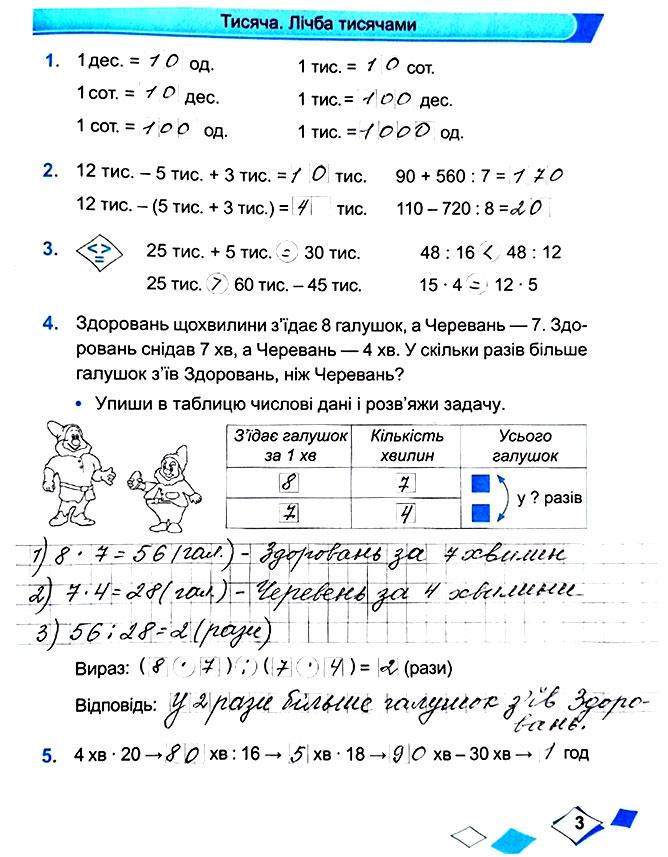 Тисяча. Лічба тисячами
1. 1 дес. = 10 од. 1 тис. = 10 сот.
1 сот. = 10 дес. 1 тис. = 100 дес.
1 сот. = 100 од. 1 тис. = 1000 од.
2. 12 тис. – 5 тис. + 3 тис. = 10 тис. 90 + 560 : 7 = 170
12 тис. – (5 тис. + 3 тис.) = 4 тис. 110 – 720 : 8 = 20
3. < > = 25 тис. + 5 тис. = 30 тис. 48 : 16 < 48 : 12
25 тис. > 60 тис. – 45 тис. 15 · 4 = 12 · 5
4. Здоровань щохвилини з’їдає 8 галушок, а Черевань — 7. Здо-
ровань снідав 7 хв, а Черевань — 4 хв. У скільки разів більше
галушок з’їв Здоровань, ніж Черевань?
• Упиши в таблицю числові дані і розв’яжи задачу.
З’їдає галушок за 1 хв Кількість хвилин Усього галушок
8 7
7 4
у ? разів
1) 8 · 7 = 56 (гал.) - Здоровань за 7 хвилин
2) 7 · 4 = 28 (гал.) - Черевень за 4 хвилини
3) 56 : 28 = 2 (рази)
Вираз: (8 · 7) : (7 · 4) = 2 (рази)
Відповідь: У 2 рази більше галушок з’їв Здоро-
вань.
5. 4 хв · 20 → 80 хв : 16 → 5 хв · 18 → 90 хв – 30 хв → 1 год
3